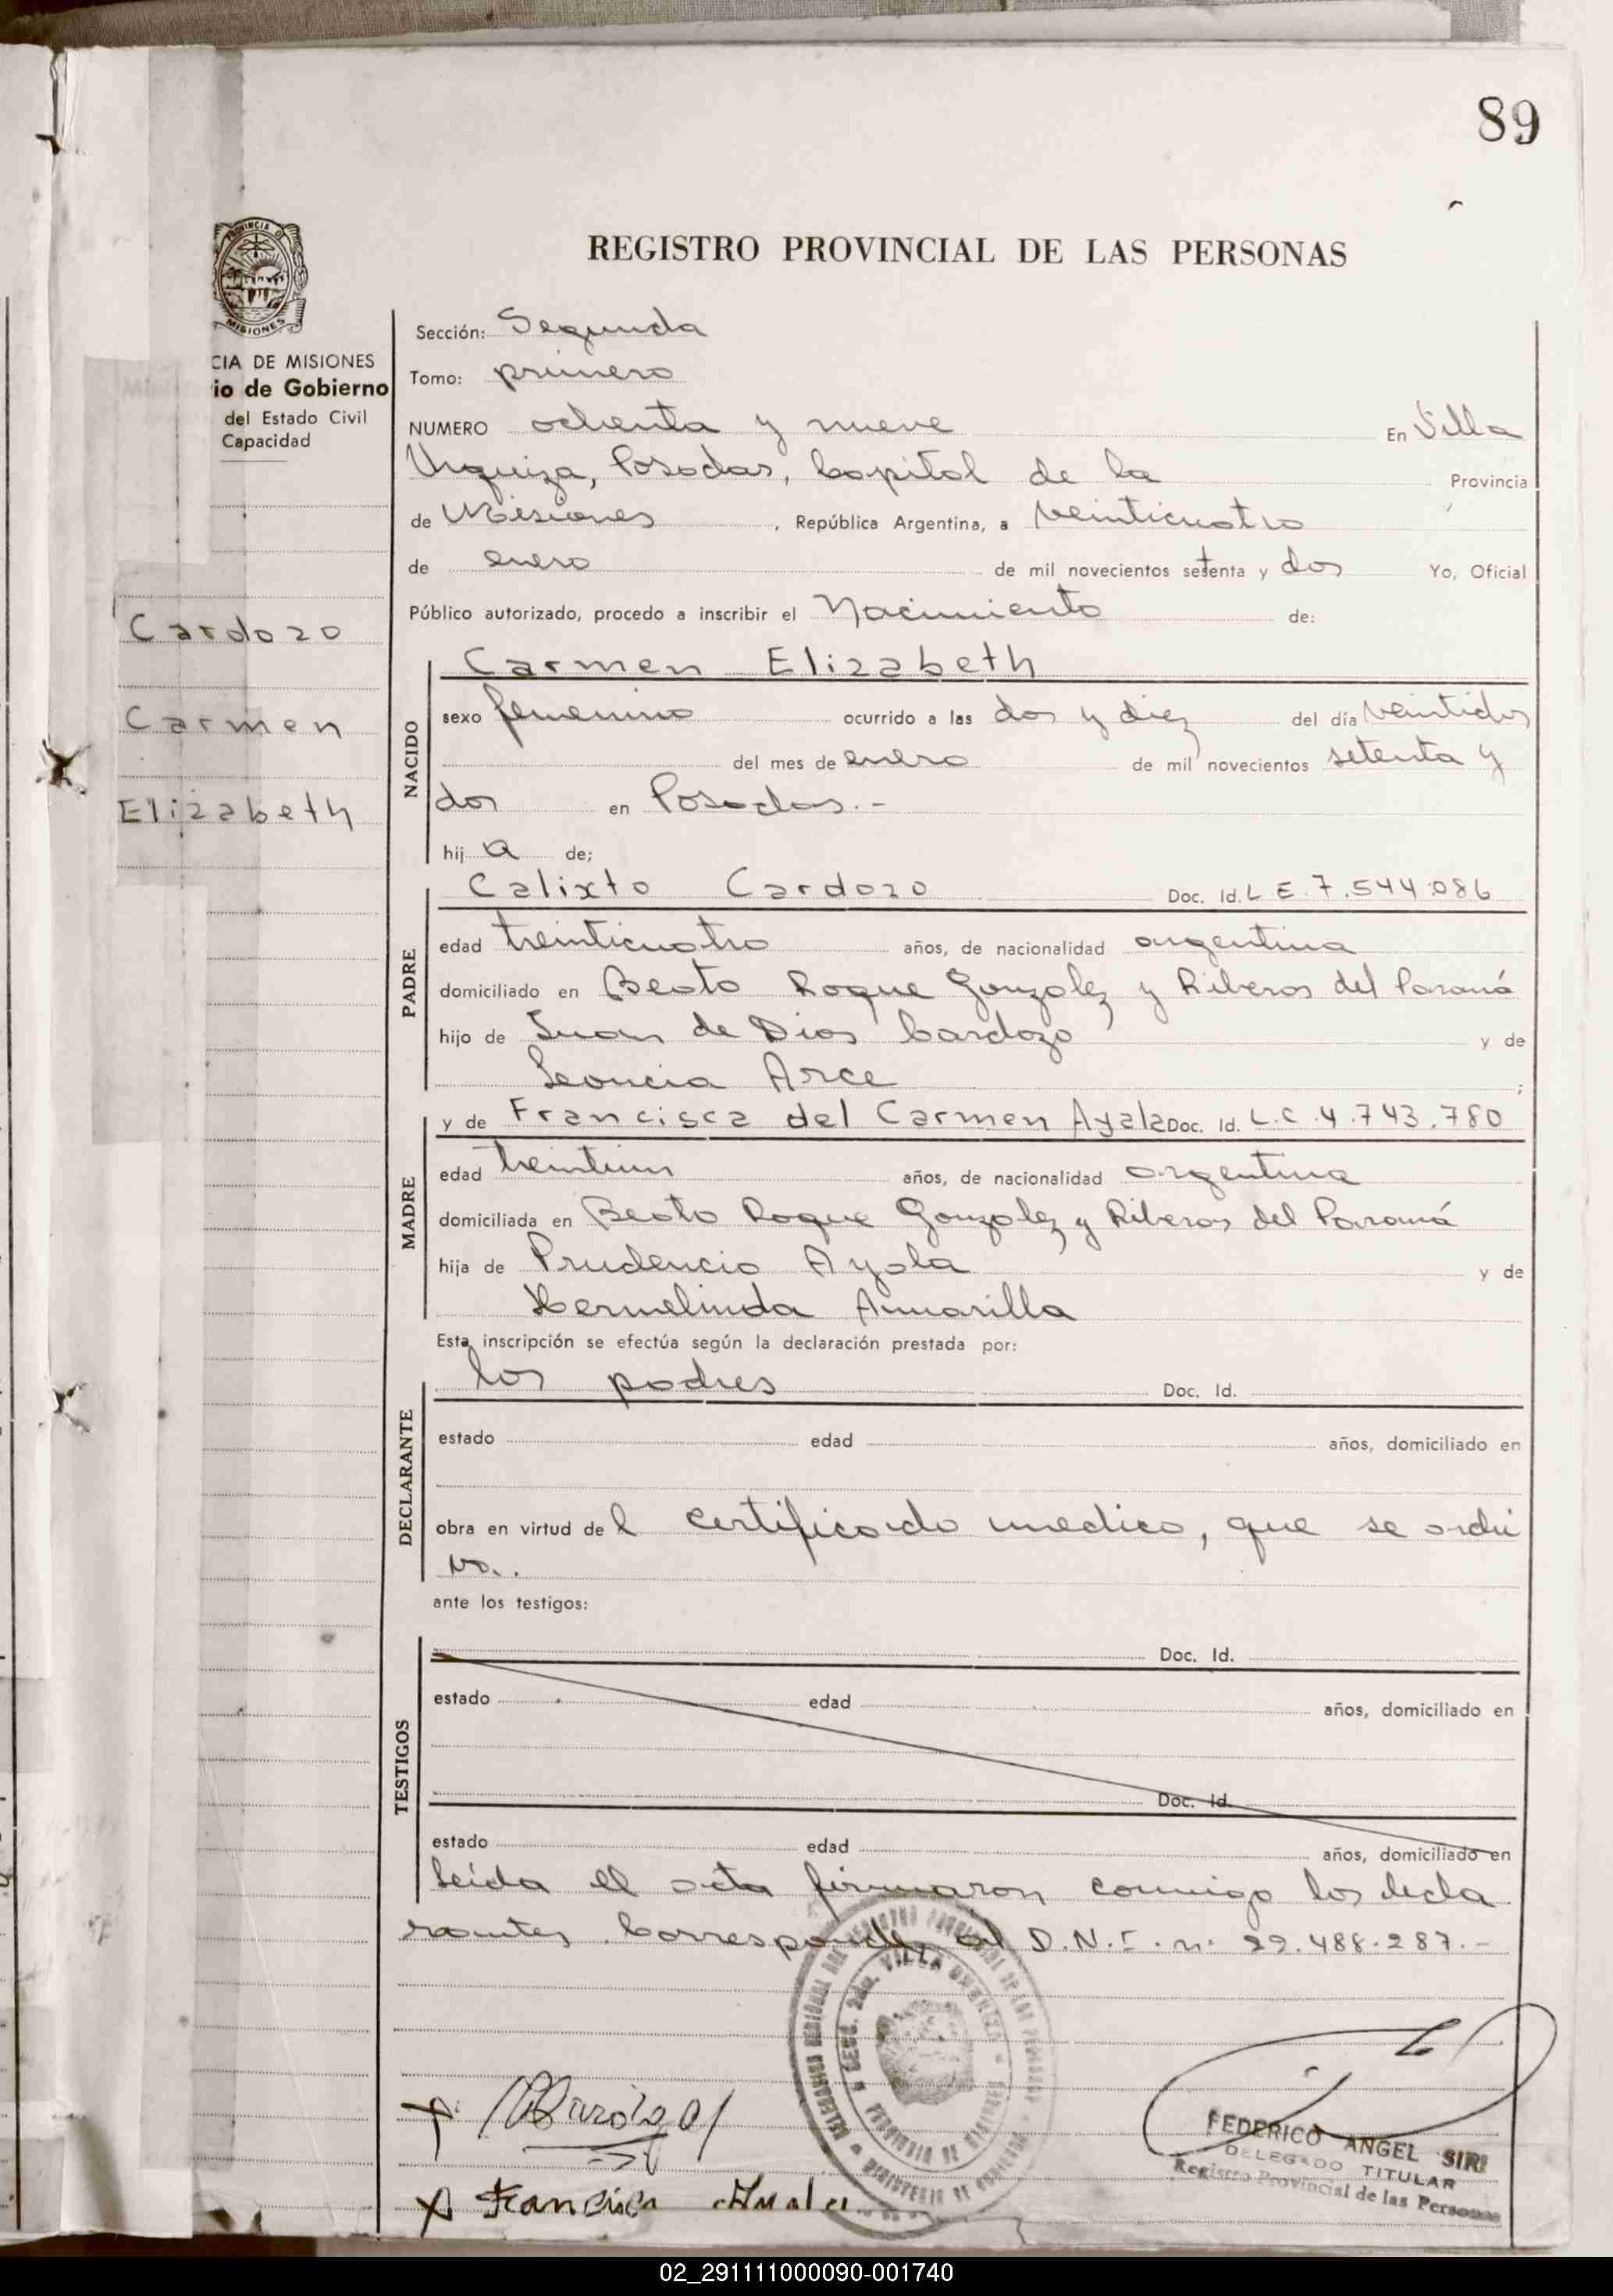 89
REGISTRO PROVINCIAL DE LAS PERSONAS
PROVINCIA D
MISIONES
CIA DE MISIONES
io de Gobierno
del Estado Civil
Capacidad
Cardozo
Carmen
Elizabeth
Sección: Segunda
Tomo: primero
NUMERO ochenta y nueve En Villa
Urquiza, Posadas, Capital de la Provincia
de Misiones, República Argentina, a veinticuatro
de enero de mil novecientos setenta y dos Yo, Oficial
Público autorizado, procedo a inscribir el Nacimiento de:
NACIDO
Carmen Elizabeth
sexo femenino ocurrido a las dos y diez del día veintidos
del mes de enero de mil novecientos setenta y
dos en Posadas.-
hij a de;
PADRE
Calixto Cardozo Doc. Id. L E. 7.544.086
edad treinticuatro años, de nacionalidad argentina
domiciliado en Beato Roque Gonzalez y Riberas del Paraná
hijo de Juan de Dios Cardozo y de
Leoncia Arce ;
MADRE
y de Francisca del Carmen Ayala Doc. Id. L.C. 4.743.780
edad treintiun años, de nacionalidad argentina
domiciliada en Beato Roque Gonzalez y Riberas del Paraná
hija de Prudencio Ayala y de
Hermelinda Amarilla
Esta inscripción se efectúa según la declaración prestada por:
DECLARANTE
los padres Doc. Id.
estado edad años, domiciliado en
obra en virtud de l certificado medico, que se archi
va..
ante los testigos:
TESTIGOS
Doc. Id.
estado edad años, domiciliado en
Doc. Id.
estado edad años, domiciliado en
Leída el acta firmaron conmigo los decla
rantes. Corresponde al D.N.I. nº 22.488.287.-
X
X Francisca Ayala
FEDERICO ANGEL SIRI
DELEGADO TITULAR
Registro Provincial de las Personas
02_291111000090-001740